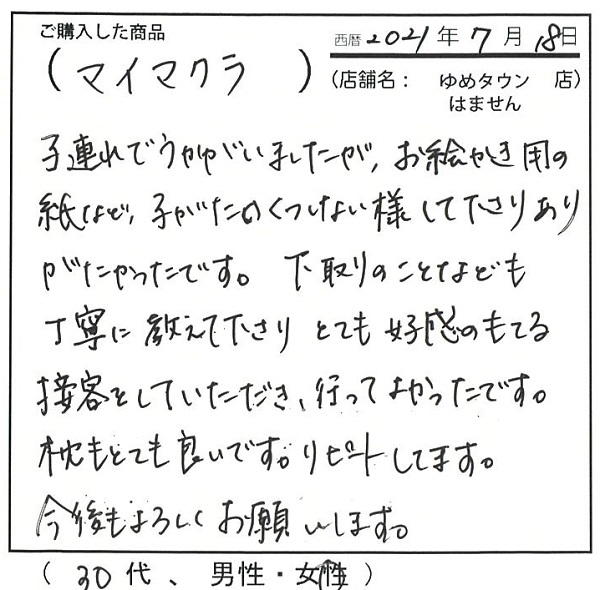 ご購入した商品
西暦 2021 年 7 月 18日
(マイマクラ)
(店舗名: ゆめタウン 店)
はません
子連れでうかがいましたが、お絵かき用の
紙など、子がたいくつしない様して下さりあり
がたかったです。下取りのことなども
丁寧に教えて下さりとても好感のもてる
接客をしていただき、行ってよかったです。
枕もとても良いです。リピートしてます。
今後もよろしくお願いします。
(30代、男性・女性)